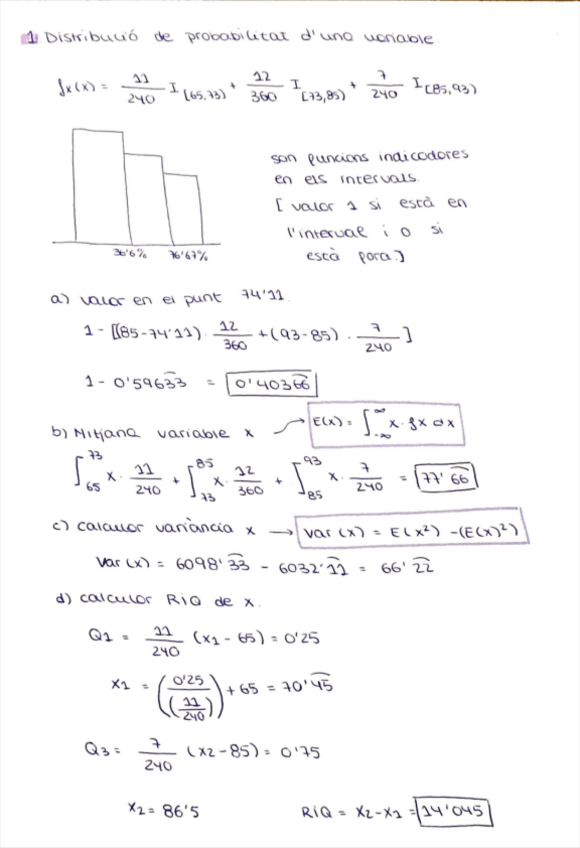 1 Distribució de probabilitat d'una variable.
fx(x) = 11/240 I [65,73) + 12/360 I [73,85) + 7/240 I [85,93)
són funcions indicadores
en els intervals.
[ valor 1 si està en
l'interval i 0 si
està fora.]
36'6% 76'67%
a) valor en el punt 74'11.
1 - [(85-74'11) · 12/360 + (93-85) · 7/240 ]
1 - 0'59633 = 0'40366
b) Mitjana variable x → E(x) = ∫_{-∞}^{∞} x · fx dx
∫_{65}^{73} x · 11/240 + ∫_{73}^{85} x · 12/360 + ∫_{85}^{93} x · 7/240 = 77'66
c) calcular variància x → Var (x) = E(x²) - (E(x)²)
Var (x) = 6098'33 - 6032'11 = 66'22
d) calcular RIQ de x.
Q1 = 11/240 (x1 - 65) = 0'25
x1 = (0'25/(11/240)) + 65 = 70'45
Q3 = 7/240 (x2 - 85) = 0'75
x2 = 86'5 RIQ = x2 - x1 = 14'045